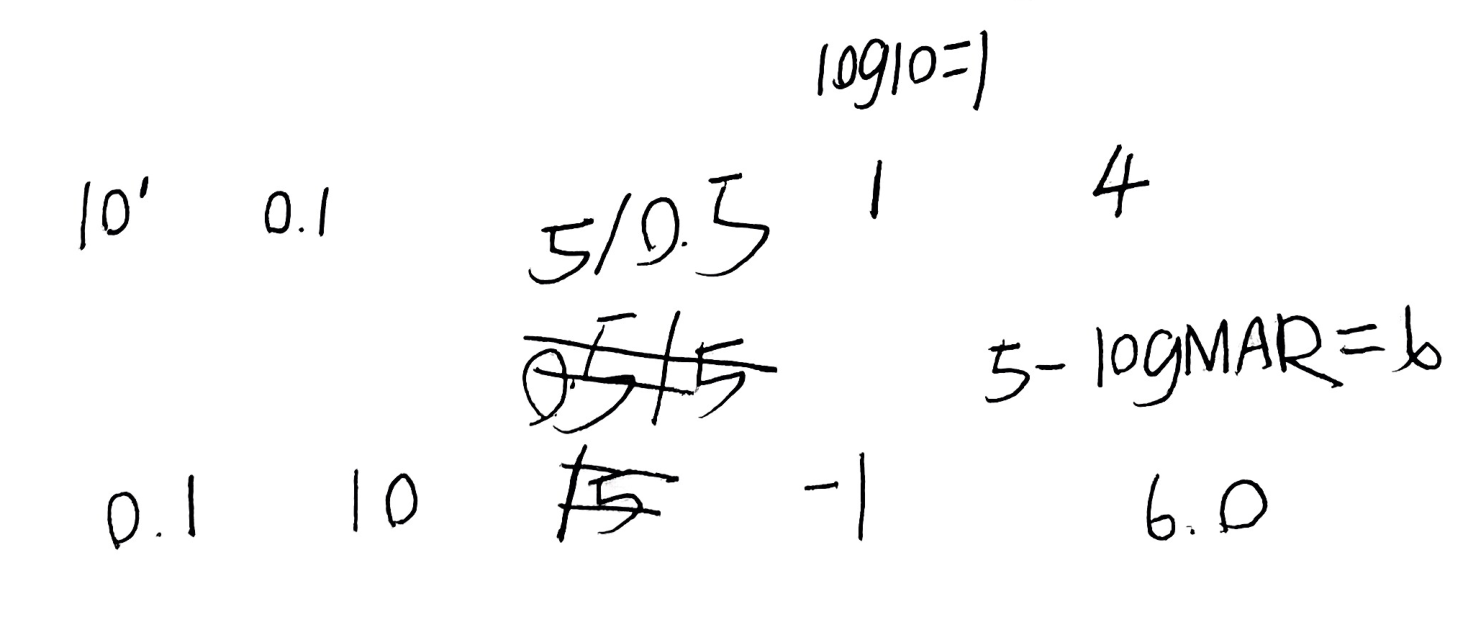 log10=1
10' 0.1 5/0.5 1 4
0.5/5 5-logMAR=6
0.1 10 /5 -1 6.0